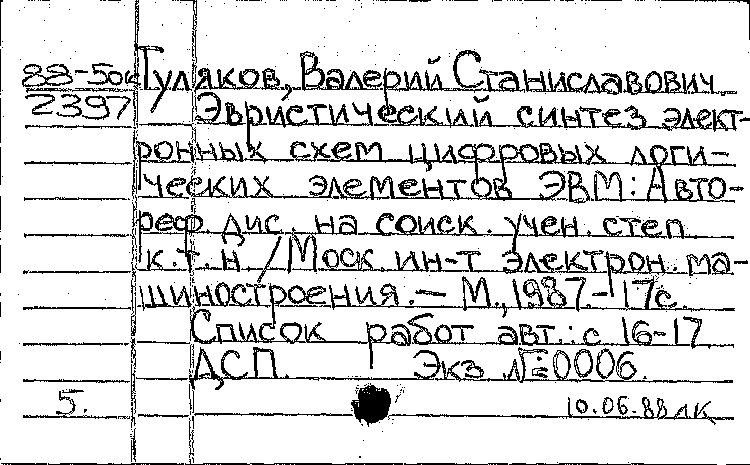 88-50к Гуляков, Валерий Станиславович
2397 Эвристический синтез элект-
ронных схем цифровых логи-
ческих элементов ЭВМ: Авто-
реф. дис. на соиск. учен. степ.
к.т.н. / Моск. ин-т электрон. ма-
шиностроения. — М., 1987. — 17с.
Список работ авт.: с 16-17
ДСП. Экз. №:0006.
5. 10.06.88 лк